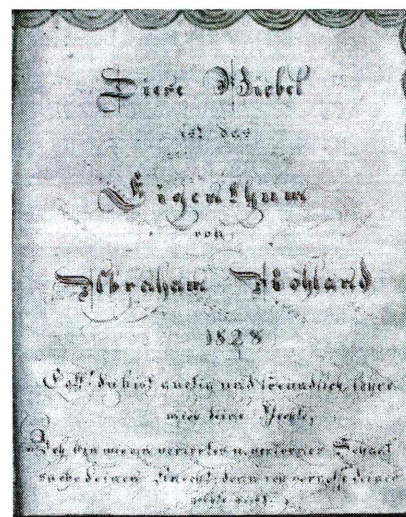 Diese Biebel
ist das
Eigenthum
von
Abraham
1828
Gott! du bist guetig und freundlich, lehre
deine Rechte,
Ich bin wie ein verirrtes u. verlorner Schaaf
suche deinen Knecht, denn ich vergesse deiner
nicht.